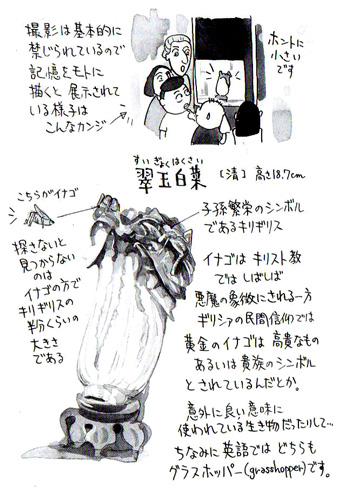 撮影は基本的に
禁じられているので
記憶をモトに
描くと 展示されて
いる様子は
こんなカンジ
ホントに
小さい
です
すいぎょくはくさい
翠玉白菜 [清] 高さ18.7cm
こちらがイナゴ
探さないと
見つからない
のは
イナゴの方で
キリギリスの
半分くらいの
大きさ
である
子孫繁栄のシンボル
であるキリギリス
イナゴは キリスト教
では しばしば
悪魔の象徴にされる一方
ギリシアの民間信仰では
黄金のイナゴは 高貴なもの
あるいは 貴族のシンボル
とされているんだとか。
意外に良い意味に
使われている生き物だったりして…
ちなみに 英語では どちらも
グラスホッパー(grasshopper)です。